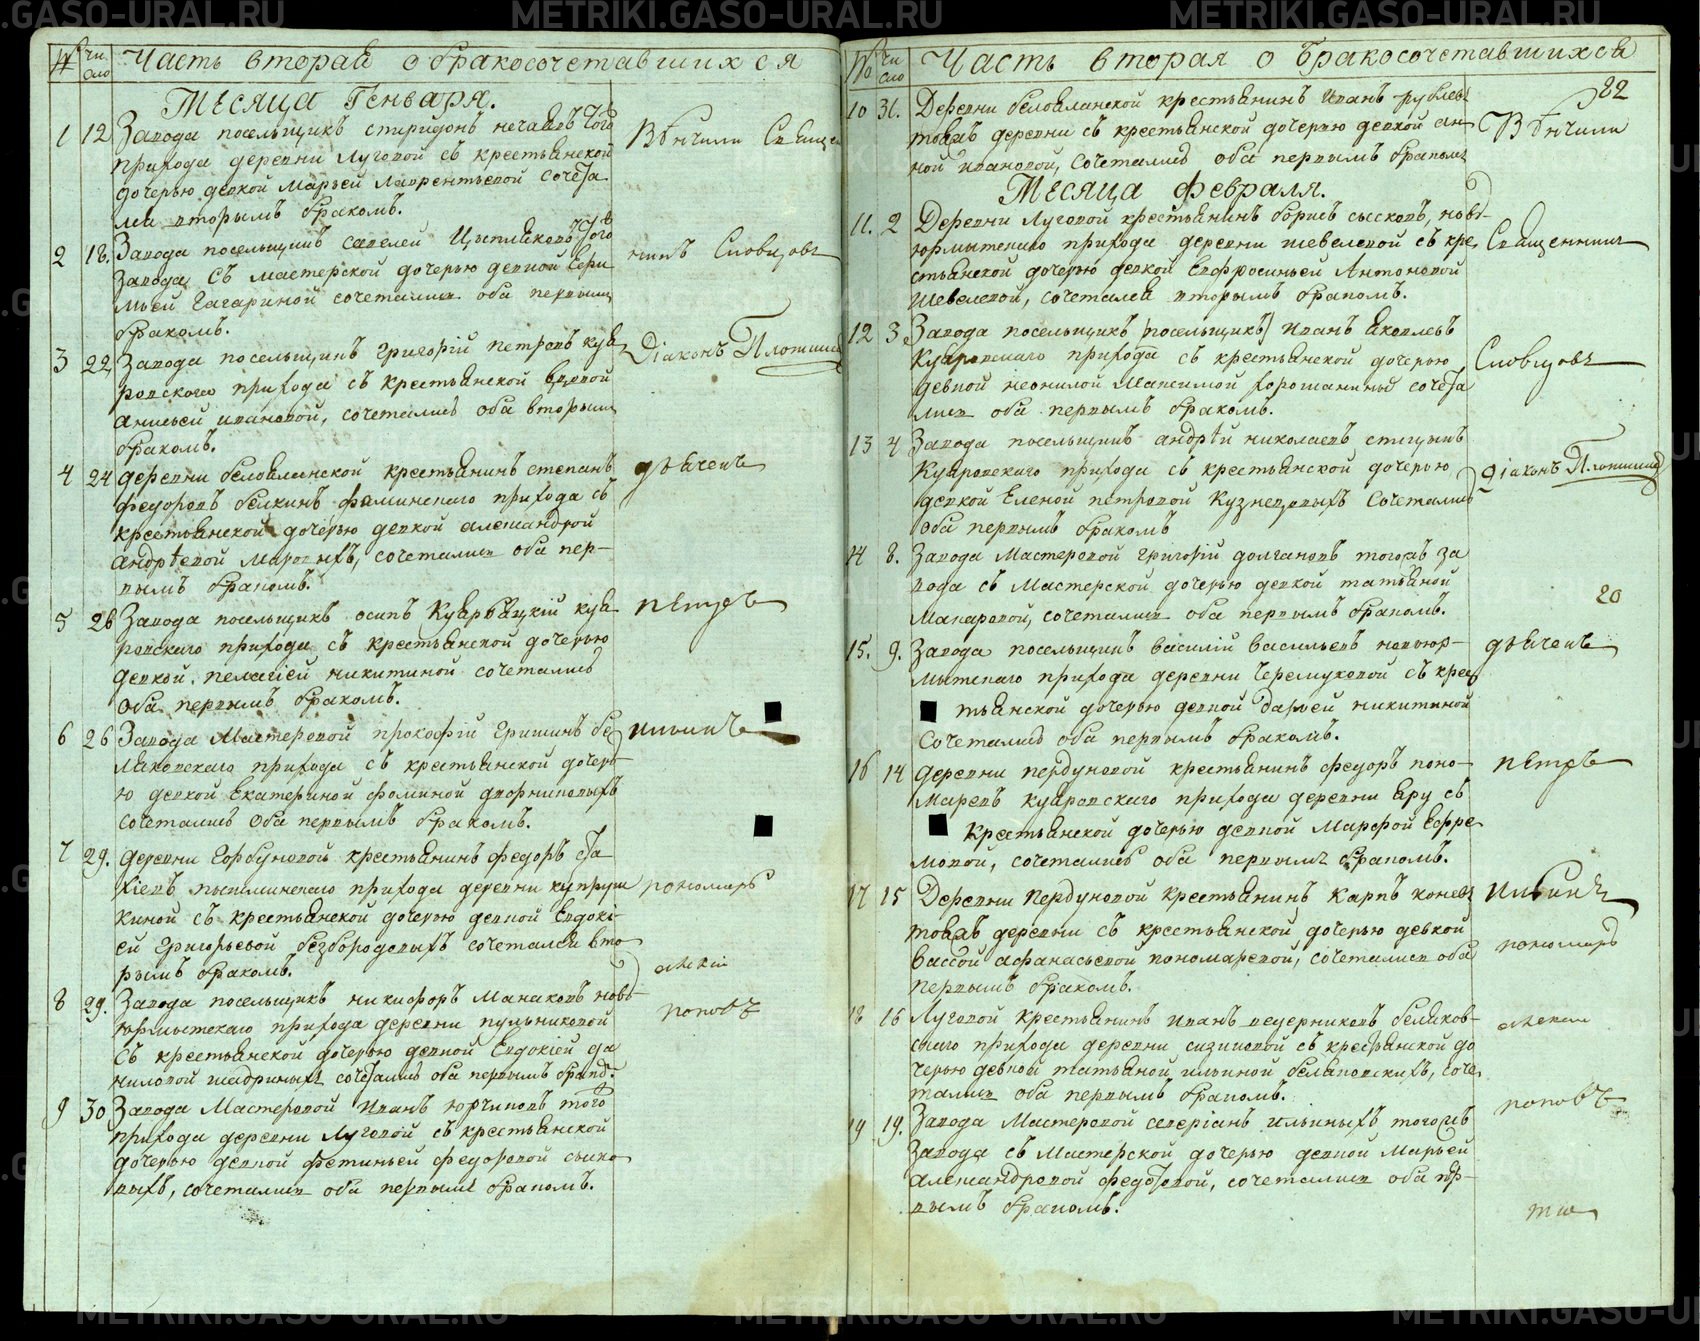 № Число Часть вторая о бракосочетавшихся
Месяца Генваря.
1 12 Завода посельщикъ спиридонъ нечаевъ того
прихода деревни Луговой съ крестьянской
дочерью девкой Марьей Лаврентьевой сочета
лся вторымъ бракомъ.
2 18. Завода посельщикъ савелей Цыпляковъ того
завода съ мастерской дочерью девкой
Гагариной сочетались оба первымъ
бракомъ.
3 22 Завода посельщикъ григорій петровъ куя
ровского прихода съ крестьянской вдовой
анисьей ивановой, сочетались оба вторымъ
бракомъ.
4 24 деревни белоеланской крестьянинъ степанъ
федоровъ белкинъ фоминского прихода съ
крестьянской дочерью девкой александрой
андрѣевой сочетались оба пер-
вымъ бракомъ.
5 26 Завода посельщикъ осипъ куя
ровского прихода съ крестьянской дочерью
девкой пелагіей никитиной сочетались
оба первымъ бракомъ.
6 26 Завода Мастеровой прокофій Гришинъ бе
ляковского прихода съ крестьянской дочерь-
ю девкой Екатериной фоминой дворниковыхъ
сочетались оба первымъ бракомъ.
7 29. деревни Горбуновой крестьянинъ федоръ
пышминского прихода деревни
съ крестьянской дочерью девкой Евдокі-
ей Григорьевой безбородовыхъ сочетался вто
рымъ бракомъ.
8 29. Завода посельщикъ никифоръ Манаковъ ново
юрмытскаго прихода деревни пульниковой
съ крестьянской дочерью девкой Евдокіей да
ниловой шадриныхъ сочетались оба первымъ брако.
9 30 Завода Мастеровой Иванъ юрчиковъ того
прихода деревни Луговой съ крестьянской
дочерью девкой фетиньей федоровой
сочетались оба первымъ бракомъ.
Вѣнчали Священ
никъ Словцовъ
Діаконъ Плотник
дьячекъ
петръ
ильинъ
пономарь
алексей
поповъ
№ Число Часть вторая о бракосочетавшихся
82
10 31. Деревни белоеланской крестьянинъ Иванъ рублевъ
тояжъ деревни съ крестьянской дочерью девкой ан-
ной ивановой, сочетались оба первымъ бракомъ
Месяца февраля.
11. 2 Деревни Луговой крестьянинъ борисъ сысковъ, ново-
юрмытского прихода деревни шевелевой съ кре
стьянской дочерью девкой Евфросиньей Антоновой
Шевелевой, сочетался вторымъ бракомъ.
12 3 Завода посельщикъ [посельщикъ] Иванъ яковлевъ
Куяровскаго прихода съ крестьянской дочерью
девкой неонилой Максимой сочета
лись оба первымъ бракомъ.
13 4 Завода посельщикъ андрѣй николаевъ спицынъ
Куяровскаго прихода съ крестьянской дочерью
девкой Еленой петровой Кузнецовыхъ сочетались
оба первымъ бракомъ
14 8. Завода Мастеровой григорій долгановъ тогожъ за
вода съ Мастерской дочерью девкой татьяной
Макаровой, сочетались оба первымъ бракомъ.
15. 9. Завода посельщикъ василій васильевъ новоюр-
мытскаго прихода деревни Черемуховой съ крес
тьянской дочерью девкой дарьей никитиной
сочетались оба первымъ бракомъ.
16 14 деревни пердуновой крестьянинъ федоръ поно-
маревъ куяровскаго прихода деревни Яру съ
крестьянской дочерью девкой Марфой Ефре
мовой, сочетались оба первымъ бракомъ.
17 15 Деревни Пердуновой крестьянинъ Карпъ коневъ
тояжъ деревни съ крестьянской дочерью девкой
вассой афанасьевой пономаревой, сочетались оба
первымъ бракомъ.
18 16 Луговой крестьянинъ иванъ беляков-
скаго прихода деревни съ крестьянской до
черью девкой татьяной ильиной беляковскихъ, соче
тались оба первымъ бракомъ.
19 19. Завода Мастеровой северіанъ ильиныхъ тогожъ
Завода съ Мастерской дочерью девкой Марьей
александровой федотовой, сочетались оба пер-
вымъ бракомъ.
Вѣнчали
Священникъ
Словцовъ
діаконъ Плотник
20
дьячекъ
петръ
ильинъ
пономарь
алексей
поповъ
METRIKI.GASO-URAL.RU